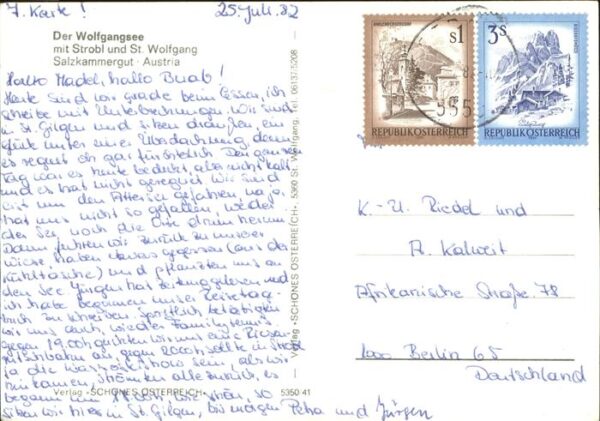 7. Karte! 25. Juli 82
Der Wolfgangsee
mit Strobl und St. Wolfgang
Salzkammergut · Austria
Hallo Madel, hallo Buab!
Heute sind wir grade beim Essen, ich
schreibe mit Unterbrechungen, wir sind
in St. Gilgen und sitzen draußen, ein
Glück unter einer Überdachung, denn
es regnet oh gar fürchtlich. Den ganzen
Tag war es heute bedeckt, aber nicht kalt
und es hat nicht geregnet. Wir sind
um den Attersee gefahren, na ja,
hat uns nicht so gefallen, weder
der See noch die Orte drum herum.
Dann fuhren wir zurück zu unserer
Wiese, haben etwas gegessen (aus der
Kühltasche) und pflanzten uns an
den See. Jürgen hat Zeitung gelesen und
ich habe begonnen unser Reisetage-
buch zu schreiben. Sportlich betätigten
wir uns auch, wieder Familytennis.
Gegen 19.00h guckten wir uns eine Riesen-
an, gegen 20.00h sollte in Strobl
ja die Wasserskishow sein, als wir
hinkamen strömten alle zurück, es
begann um So
sitzen wir hier in St. Gilgen, bis morgen Petra und Jürgen
Verlag »SCHÖNES ÖSTERREICH« 5350 41
Verlag »SCHÖNES ÖSTERREICH«, 5360 St. Wolfgang, Tel. 06137/5208
S1
REPUBLIK ÖSTERREICH
3S
REPUBLIK ÖSTERREICH
K.-U. Riedel und
A. Kalweit
Afrikanische Straße 78
1000 Berlin 65
Deutschland